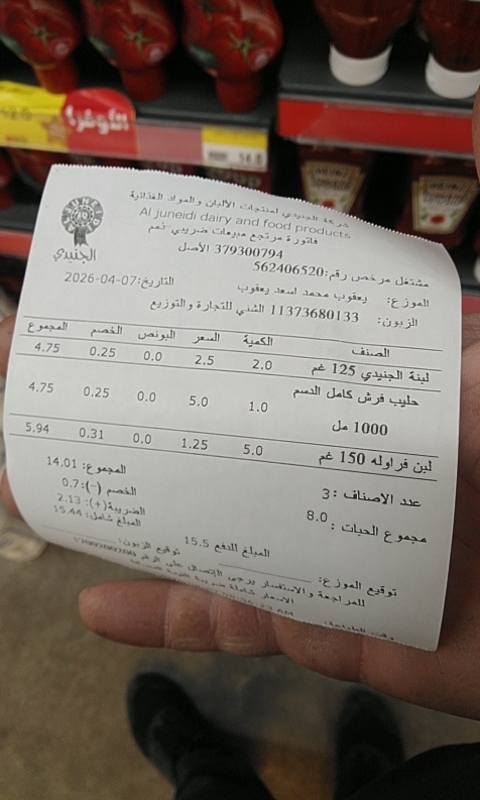 الأوفر!
HEINZ
HEINZ
شركة الجنيدي لمنتجات الألبان والمواد الغذائية
Al juneidi dairy and food products
الجنيدي
فاتورة مرتجع مبيعات ضريبي-ذمم
379300794 الأصل
مشتغل مرخص رقم:562406520
الموزع: يعقوب محمد اسعد يعقوب
التاريخ:2026-04-07
الزبون: 11373680133 الشني للتجارة والتوزيع
الصنف الكمية السعر البونص الخصم المجموع
لبنة الجنيدي 125 غم 2.0 2.5 0.0 0.25 4.75
حليب فرش كامل الدسم 1000 مل 1.0 5.0 0.0 0.25 4.75
لبن فراوله 150 غم 5.0 1.25 0.0 0.31 5.94
عدد الاصناف : 3
مجموع الحبات : 8.0
المجموع: 14.01
الخصم (-):0.7
الضريبة(+): 2.13
المبلغ شامل: 15.44
المبلغ للدفع 15.5
توقيع الموزع: توقيع الزبون:
للمراجعة والاستفسار يرجى الإتصال على الرقم
الاسعار شاملة ضريبة